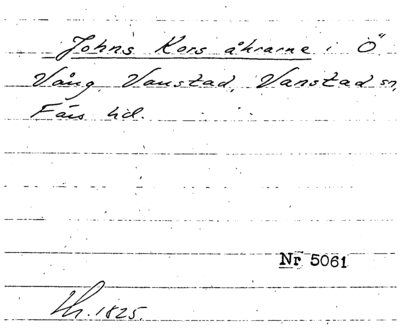 Johns Kors åkrarne i Ö
Vång Vanstad, Vanstad sn,
Färs hd.
Nr 5061
Lh. 1825.